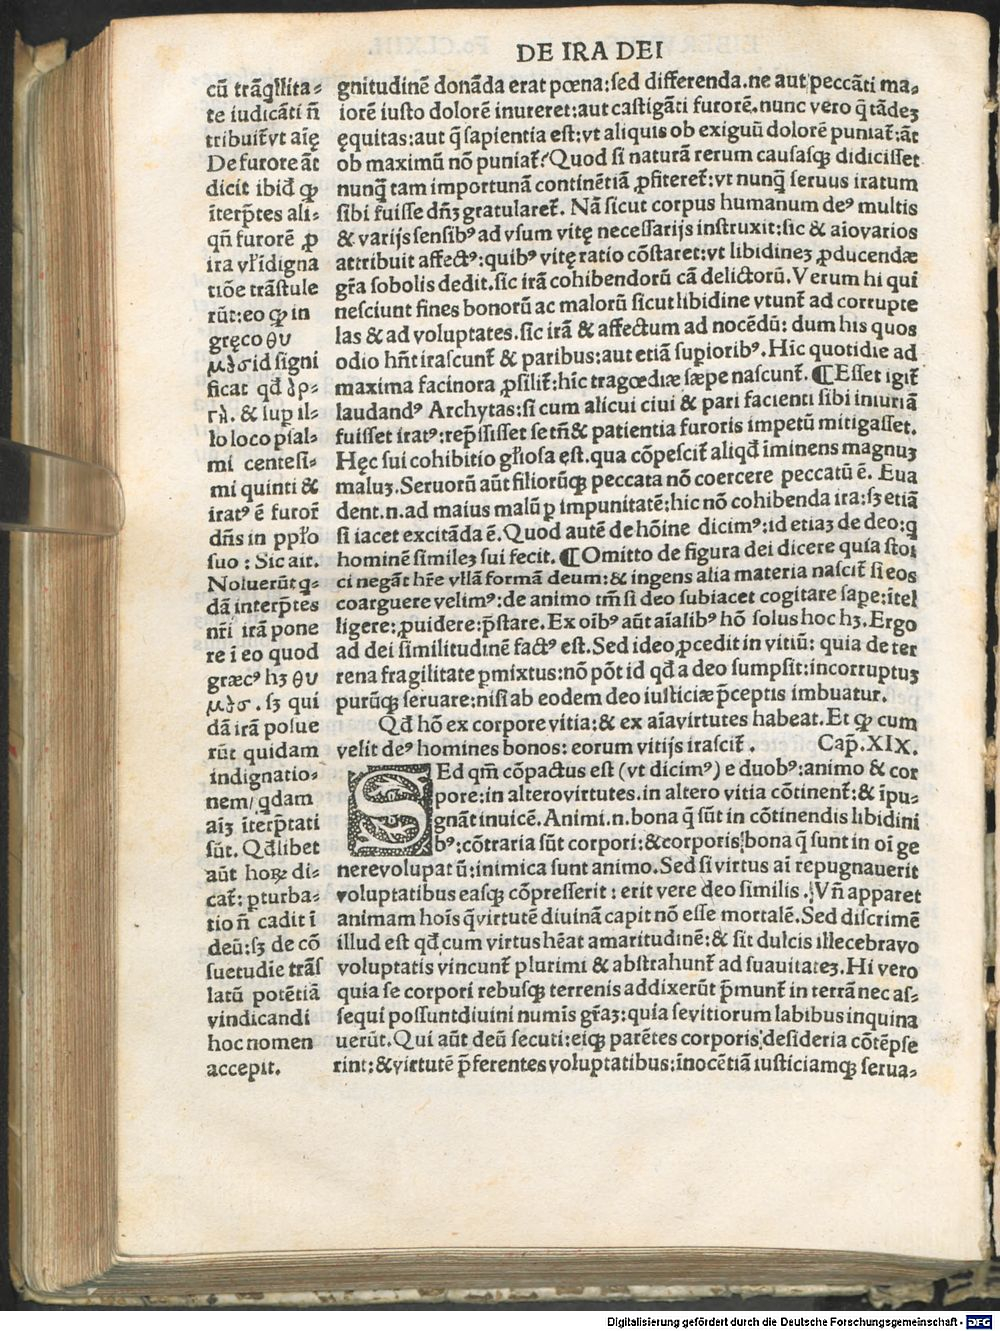 DE IRA DEI
cū trāq̄llita⸗
te iudicāti ñ
tribuit̃vt aię
De furore āt
dicit ibid̄ ꝙ
īterp̄tes ali⸗
qñ furorē ꝓ
ira vl̓idigna
tiōe trāſtule
rūt:eo ꝙ in
gręco θυ
μὸσ id ſigni
ficat qd̄ ὀρ⸗
γὴ. & ſup il⸗
lo loco pſal⸗
mi centeſi⸗
mi quinti &
iratꝰ ē furor̃
dñs in ppl̓o
ſuo : Sic ait.
Noluerūt q⸗
dā interp̄tes
nr̃i irā pone
re ī eo quod
græcꝰ hꝫ θυ
μὸσ . ſꝫ qui
dā irā poſue
rūt quidam
indignatio⸗
nem/ qdam
aiꝫ īterp̄tati
ſūt. Qd̄libet
aūt hoꝝ di⸗
cat̃: ꝑturba⸗
tio ñ cadit ī
deū:ſꝫ de cō
ſuetudīe trāſ
latū potētiā
vindicandi
hoc nomen
accepit.
gnitudinē donāda erat pœna:ſed differenda.ne aut peccāti ma⸗
iorē iuſto dolorē inureret:aut caſtigāti furorē.nunc vero q̄ tādeꝫ
ęquitas:aut q̄ ſapientia eſt:vt aliquis ob exiguū dolorē puniat̃:āt
ob maximū nō puniat̃?Quod ſi naturā rerum cauſaſqꝫ didiciſſet
nunq̄ tam importunā continētiā ꝓfiteret̃:vt nunq̄ ſeruus iratum
ſibi fuiſſe dñꝫ gratularet̃. Nā ſicut corpus humanum deꝰ multis
& varijs ſenſibꝰ ad vſum vitę neceſſarijs inſtruxit:ſic & aīovarios
attribuit affectꝰ:quibꝰ vitę ratio cōſtaret:vt libidineꝫ ꝓducendæ
gr̄a ſobolis dedit.ſic irā cohibendorū cā delictorū.Verum hi qui
neſciunt fines bonorū ac malorū ſicut libidine vtunt̃ ad corrupte
las & ad voluptates.ſic irā & affectum ad nocēdū: dum his quos
odio hñt iraſcunt̃ & paribus:aut etiā ſupioribꝰ.Hic quotidie ad
maxima facinora ꝓſilit̃:hic tragœdiæ ſæpe naſcunt̃. ¶Eſſet igit̃
laudandꝰ Archytas:ſi cum alicui ciui & pari facienti ſibi iniuriā
fuiſſet iratꝰ:rep̄ſſiſſet ſe tñ& patientia furoris impetū mitigaſſet.
Hęc ſui cohibitio gl̓oſa ęſt.qua cōpeſcit̃ aliqd̄ īminens magnuꝫ
maluꝫ.Seruorū aūt filiorūqꝫ peccata nō coercere peccatū ē. Eua
dent.n.ad maius malū ꝑ impunitatē:hic nō cohibenda ira:ſꝫ etiā
ſi iacet excitāda ē.Quod autē de hōine dicimꝰ:id etiaꝫ de deo:q
hominē ſimileꝫ ſui fecit. ¶Omitto de figura dei dicere quia ſtoi
ci negāt hr̄e vllā formā deum:& ingens alia materia naſcit̃ ſi eos
coarguere velimꝰ:de animo tm̄ ſi deo ſubiacet cogitare ſape:ītel
ligere:ꝓuidere:p̄ſtare. Ex oībꝰ aūt aīalibꝰ hō ſolus hoc hꝫ. Ergo
ad dei ſimilitudinē factꝰ eſt. Sed ideo ꝓcedit in vitiū: quia de ter
rena fragilitate ꝑmixtus:nō pōt id qd̄ a deo ſumpſit:incorruptuꝫ
purūqꝫ ſeruare:niſi ab eodem deo iuſticiæ p̄ceptis imbuatur.
Qd̄ hō ex corpore vitia:& ex aīavirtutes habeat.Et ꝙ cum
velit deꝰ homines bonos: eorum vitijs iraſcit̃ . Cap̄.XIX.
SEd qm̄ cōpactus eſt (vt dicimꝰ) e duobꝰ:animo & cor
pore:in alterovirtutes.in altero vitia cōtinent̃:& īpu⸗
gnāt inuicē. Animi.n.bona q̄ ſūt in cōtinendis libidini
bꝰ:cōtraria ſūt corpori:&corporis bona q̄ ſunt in oī ge
nerevolupat ū:inimica ſunt animo.Sed ſi virtus aī repugnauerit
voluptatibus eaſqꝫ cōpreſſerit : erit vere deo ſimilis . Vñ apparet
animam hoīs q̄virtutē diuinā capit nō eſſe mortalē.Sed diſcrimē
illud eſt qd̄ cum virtus hēat amaritudinē:& ſit dulcis illecebravo
voluptatis vincunt̃ plurimi & abſtrahunt̃ ad ſuauitateꝫ.Hi vero
quia ſe corpori rebuſqꝫ terrenis addixerūt p̄munt̃ in terrā nec aſ⸗
ſequi poſſuntdiuini numīs gr̄aꝫ:quia ſevitiorum labibus inquina
uerūt.Qui aūt deū ſecuti:eiqꝫ parētes corporis deſideria cōtēpſe
rint:&virtutē p̄ferentes voluptatibus:inocētiā iuſticiamqꝫ ſerua⸗
Digitalisierung gefördert durch die Deutsche Forschungsgemeinschaft - DFG